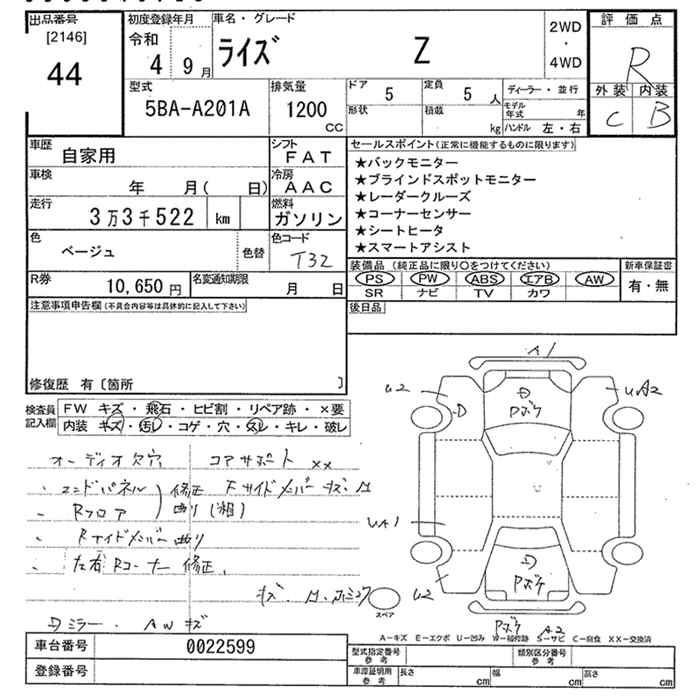 出品番号 初度登録年月 車名・グレード 評価点
[2146] 令和 ライズ Z 2WD・4WD R
44 4 9月 外装 内装
型式 排気量 ドア 5 定員 5人 ディーラー・並行 C B
5BA-A201A 1200cc 形状 積載 kg モデル年式 年 ハンドル 左・右
車歴 自家用 シフト FAT セールスポイント(正常に機能するものに限ります)
車検 年 月( 日) 冷房 AAC ★バックモニター
★ブラインドスポットモニター
走行 3万3千522 km 燃料 ガソリン ★レーダークルーズ
★コーナーセンサー
色 ベージュ 色替 色コード T32 ★シートヒータ
★スマートアシスト
R券 10,650円 名変通知期限 月 日 装備品(純正品に限り○をつけてください) 新車保証書
PS PW ABS エアB AW 有・無
SR ナビ TV カワ
注意事項申告欄(不具合内容等は具体的に記入して下さい) 後日品
修復歴 有〔箇所 〕
検査員記入欄 FW キズ・飛石・ヒビ割・リペア跡・×要
内装 キズ・汚レ・コゲ・穴・スレ・キレ・破レ
A1
U2 UA2
D D Pボケ
オーディオ欠穴 コアサポート ××
・エンドパネル 修正 Fサイドメンバー キズ・凹
・Rフロア 曲り(粗)
・Rサイドメンバー 曲り
・左右Rコーナー 修正
UA1
D Pボケ
U2
スペア
Dミラー・AWキズ
Pボケ A2
A-キズ E-エクボ U-凹み W-補修跡 S-サビ C-腐食 XX-交換済
車台番号 0022599 型式指定番号 参考 類別区分番号 参考
登録番号 車庫証明用 参考 長さ cm 幅 cm 高さ cm